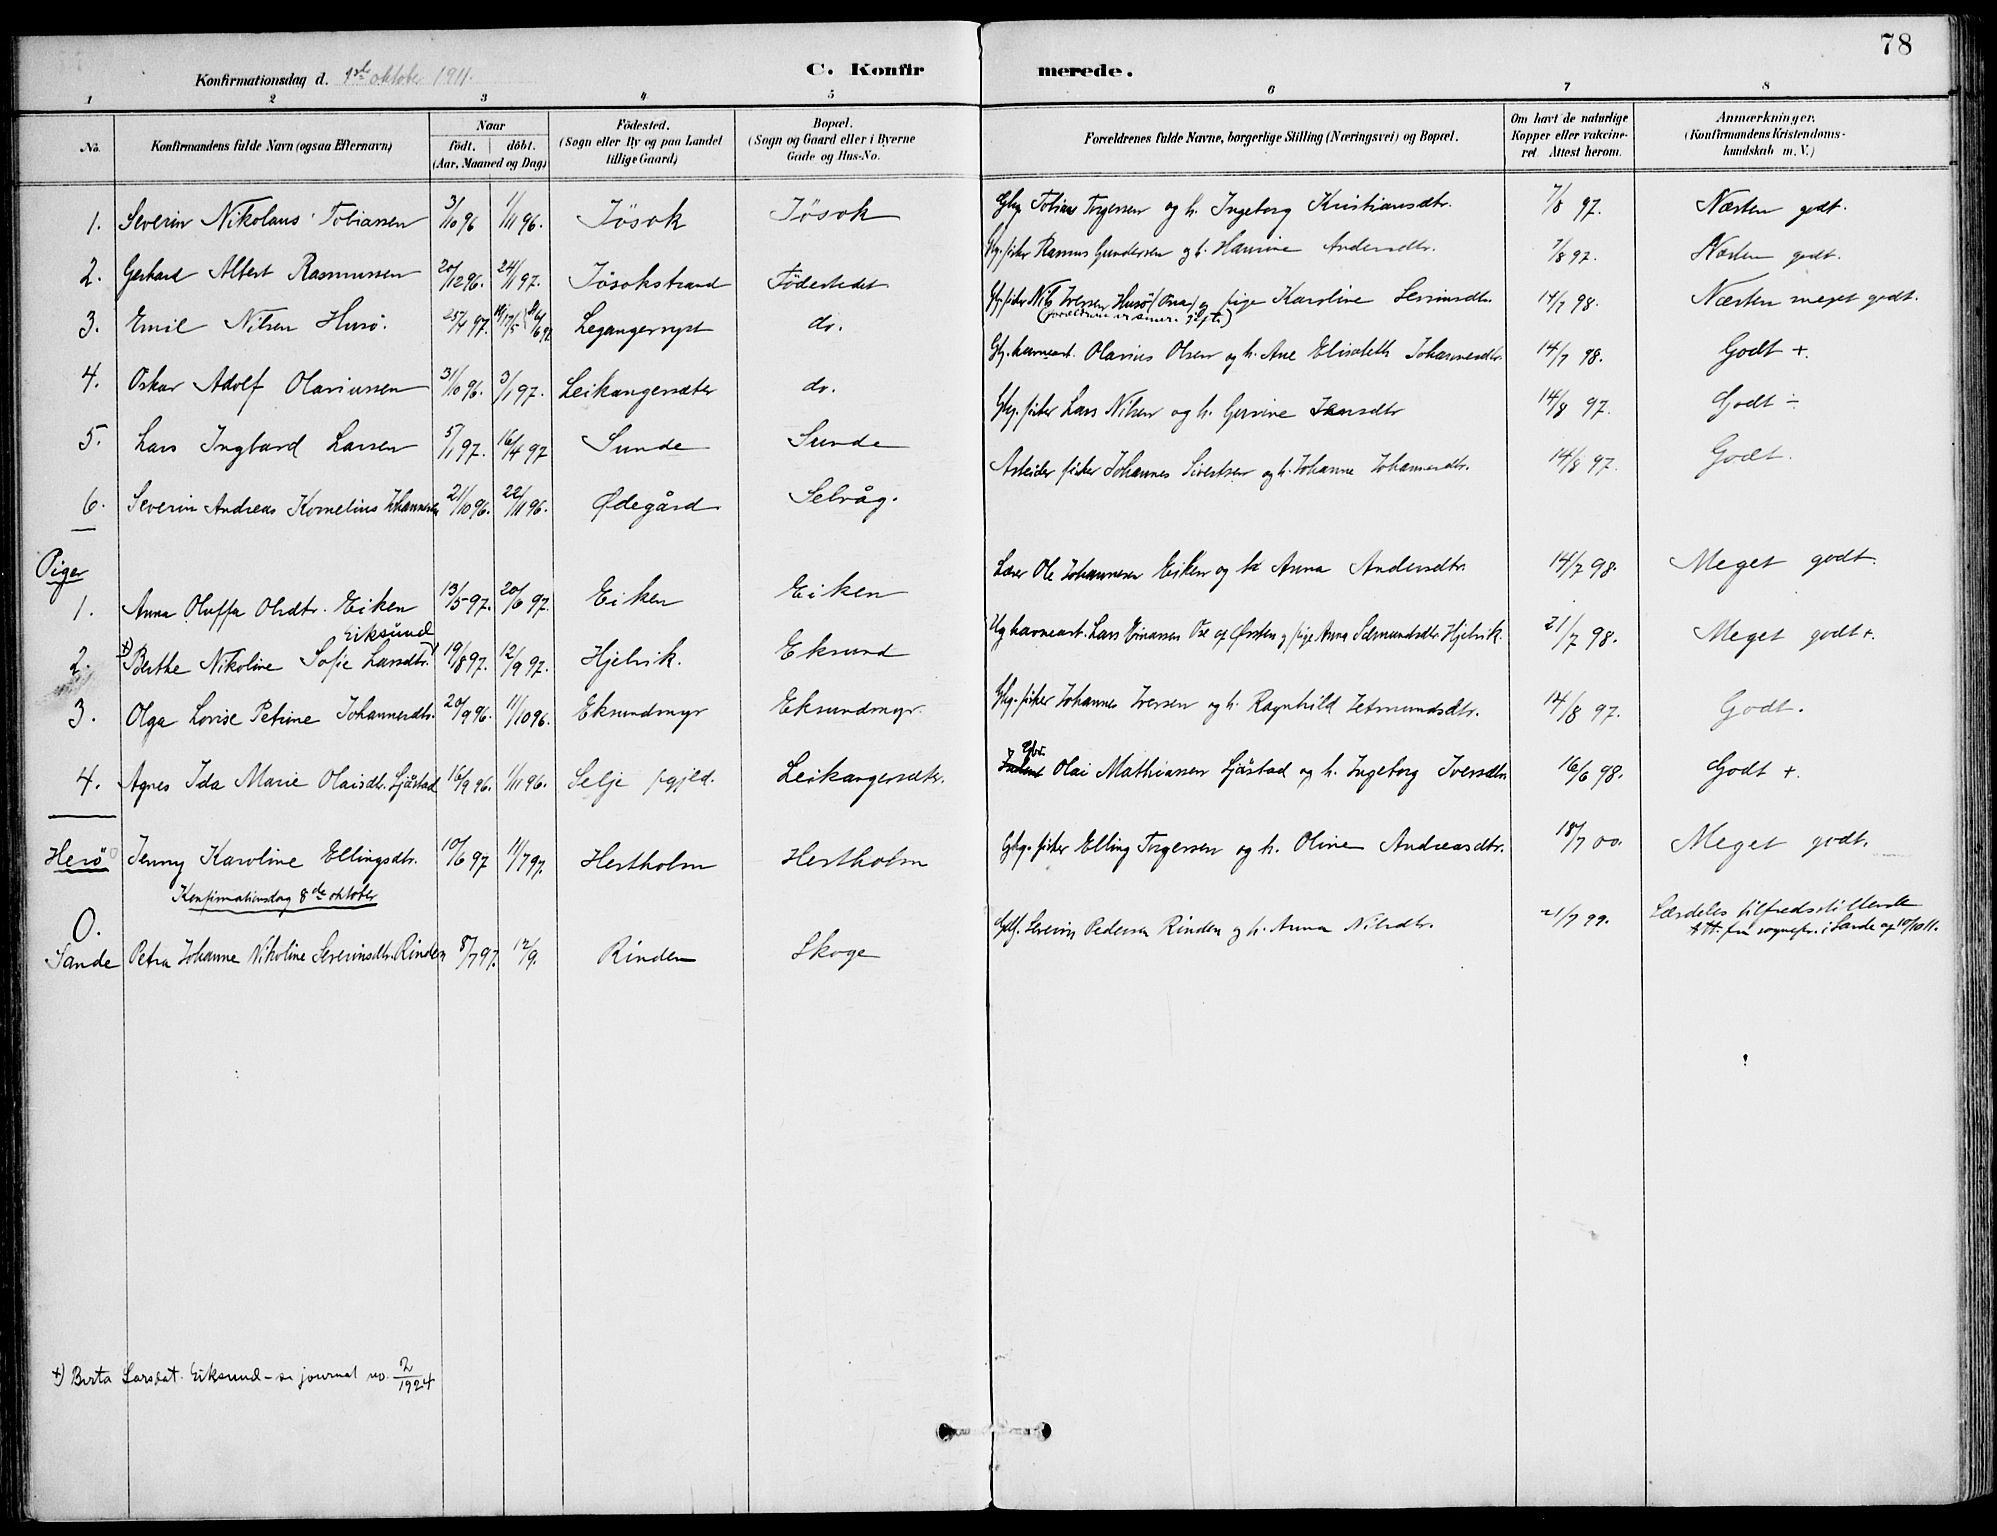 78
Konfirmationsdag d. 1ste oktober 1911.
C. Konfir merede.
1 2 3 4 5 6 7 8
No. Konfirmandens fulde Navn (ogsaa Efternavn)
Naar født. døbt. (Aar, Maaned og Dag)
Fødested. (Sogn eller By og paa Landet tillige Gaard)
Bopæl. (Sogn og Gaard eller i Byerne Gade og Hus-No.
Forældrenes fulde Navne, borgerlige Stilling (Næringsvei) og Bopæl.
Om havt de naturlige Kopper eller vakcineret. Attest herom.
Anmærkninger. (Konfirmandens Kristendomskundskab m. V.)
1. Severin Nikolaus Tobiassen 3/10 96 1/11 96. Jøsok Jøsok Gbr. Tobias Torgersen og h. Ingeborg Kristiansdtr. 7/8 97. Næsten godt.
2. Gerhard Albert Rasmussen 20/12 96. 24/1 97. Jøsokstrand Fødestedet fisker Rasmus Gundersen og h. Hansine Andersdtr. 7/8 97. Næsten godt.
3. Emil Nilsen Husø. 25/4 97. Legangernyst do. fisker Nils Iversen Husø og pige Karoline Sevrinsdtr. 14/7 98. Næsten meget godt.
4. Oskar Adolf Olariussen 31/10 96. 3/1 97. Leikangersæter do. havnearb. Olarius Olsen og h. Ane Elisabeth Johannesdtr. 14/7 98. Godt +
5. Lars Ingbard Larsen 5/1 97. 16/4 97 Sunde Sunde Gbg. fisker Lars Nilsen og h. Gurine Jensdtr 14/8 97. Godt ÷
6. Severin Andreas Kornelius Johannessen 21/10 96. 22/11 96. Ødegård Selvåg. Arbeider fisker Johannes Sivertsen og h. Johanne Johannesdtr. 14/8 97. Godt.
Piger
1. Anna Oluffa Olsdtr. Eiken 13/5 97. 20/6 97. Eiken Eiken Lærer Ole Johannesen Eiken og h. Anna Andersdtr. 14/7 98. Meget godt.
Eiksund
2. +) Berthe Nikoline Sofie Larsdtr. 19/8 97. 12/9 97. Hjelvik. Eksund Ug. havnearb. Lars Ose af Ørsten og pige Anna Hjelvik. 21/7 98. Meget godt +.
3. Olga Lovise Petrine Johannesdtr. 20/9 96. 11/10 96. Eksundmyr Eksundmyr. Gbg. fisker Johannes Iversen og h. Ragnhild Setmundsdtr. 14/8 97. Godt.
4. Agnes Ida Marie Olaisdtr. Sjåstad 16/9 96. 1/11 96. Selje prgjeld. Leikangersætr. Gbr. Olai Mathiassen Sjåstad og h. Ingeborg Iversdtr 16/6 98. Godt +.
Herø Jenny Karoline Ellingsdtr. 10/6 97 11/7 97. Hestholm Hestholm Gbg. fisker Elling Torgersen og h. Oline Andreasdtr. 18/7 00. Meget godt.
Konfirmationsdag 8de oktober
0. Sande Petra Johanne Nikoline Severinsdtr. Rinden 8/7 97. 12/9. Rinden Skoge Severin Pedersen Rinden og h. Anna Nilsdtr. 21/7 99. Særdeles tilfredsstillende
Att. fra sognepr. i Sande af 10/10 11.
+) Berta Larsdat. Eiksund – se journal no. 2/1924